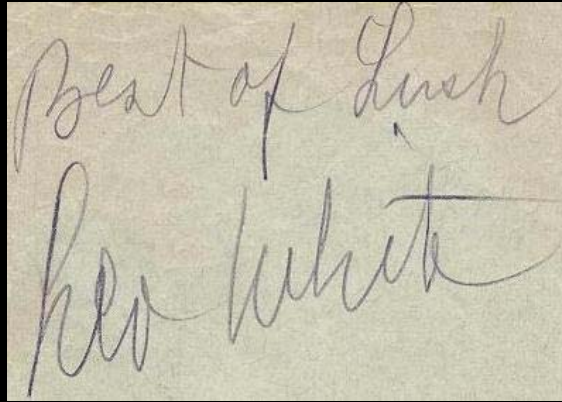 Best of Luck
Leo White